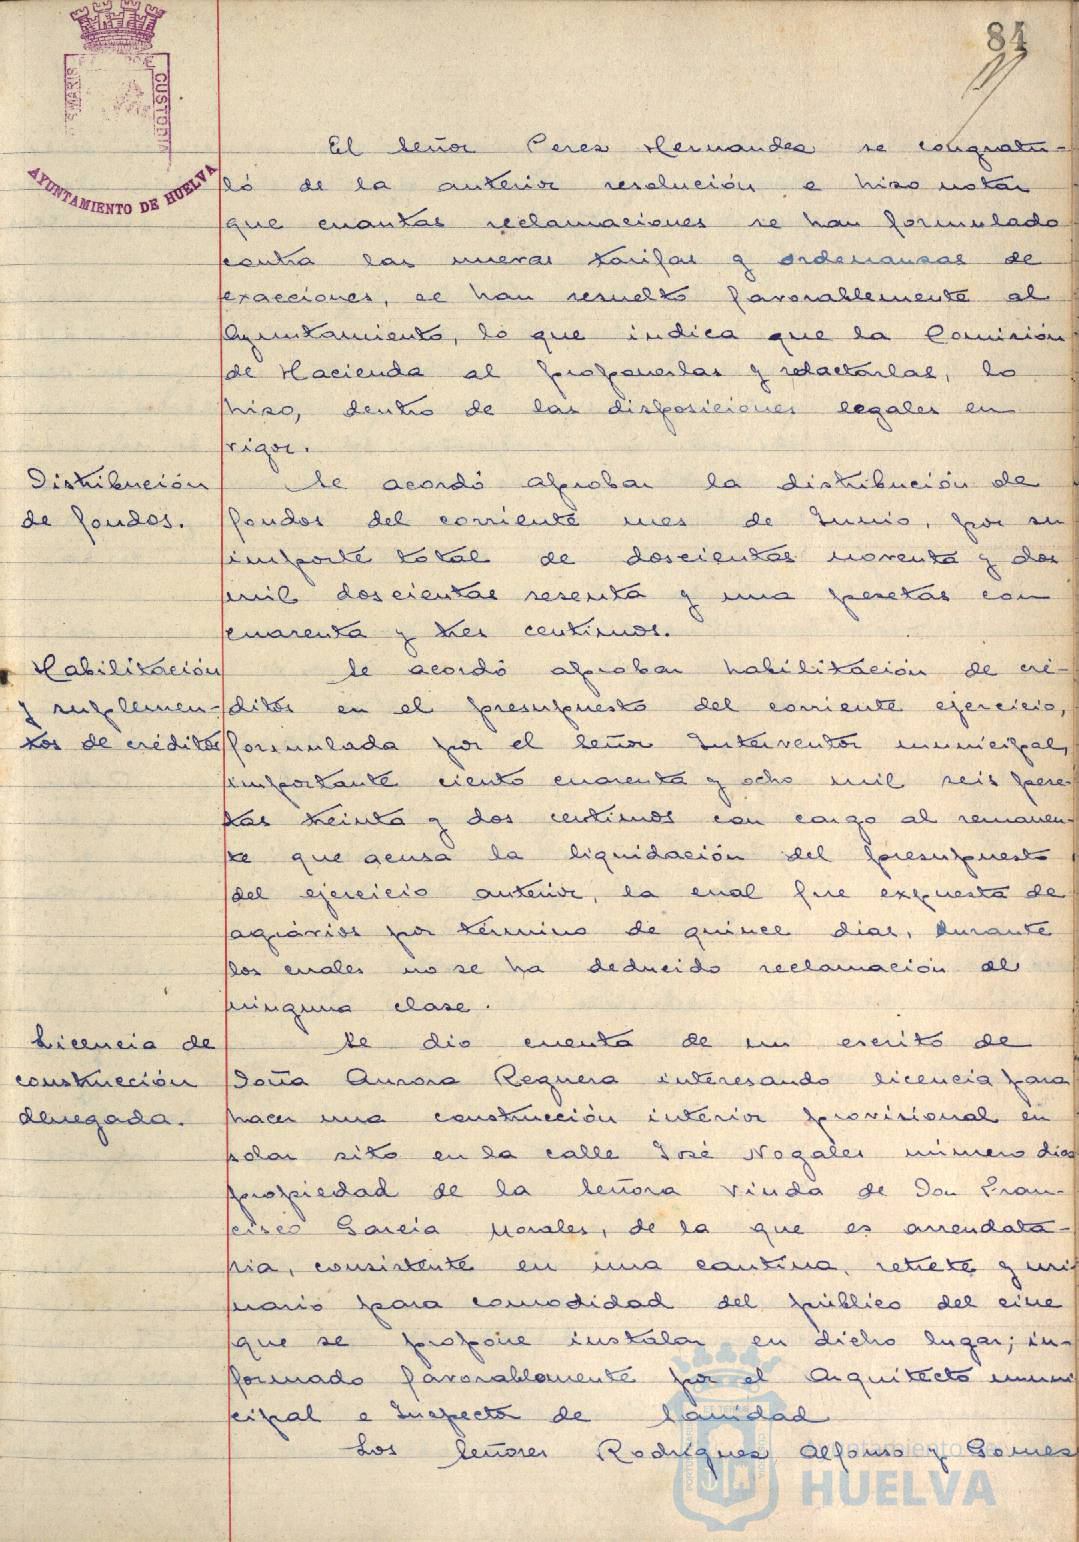 84
S MARIS
CUSTODIA
AYUNTAMIENTO DE HUELVA
El Señor Perez Hernandez se congratu-
ló de la anterior resolución e hizo notar
que cuantas reclamaciones se han formulado
contra las nuevas tarifas y ordenanzas de
exacciones, se han resuelto favorablemente al
Ayuntamiento, lo que indica que la Comisión
de Hacienda al proponerlas y redactarlas, lo
hizo, dentro de las disposiciones legales en
vigor.
Distribución
de fondos.
Se acordó aprobar la distribución de
fondos del corriente mes de Junio, por su
importe total de doscientas noventa y dos
mil doscientas sesenta y una pesetas con
cuarenta y tres centimos.
Habilitación
y suplemen-
tos de créditos
Se acordó aprobar habilitación de cré-
ditos en el presupuesto del corriente ejercicio,
formulada por el Señor Interventor municipal,
importante ciento cuarenta y ocho mil seis pese-
tas treinta y dos centimos con cargo al remanen-
te que acusa la liquidación del presupuesto
del ejercicio anterior, la cual fue expuesta de
agrávios por término de quince dias, durante
los cuales no se ha deducido reclamación de
ninguna clase.
Licencia de
construcción
denegada.
Se dio cuenta de un escrito de
Doña Aurora Reguera interesando licencia para
hacer una construcción interior provisional en
solar sito en la calle José Nogales número diez
propiedad de la Señora Viuda de Don Fran-
cisco Garcia Morales, de la que es arrendata-
ria, consistente en una cantina, retrete y uri-
nario para comodidad del público del cine
que se propone instalar en dicho lugar; in-
formado favorablemente por el Arquitecto muni
cipal e Inspector de Sanidad
Los Señores Rodríguez Alfonso y Gomez
Ayuntamiento de
HUELVA